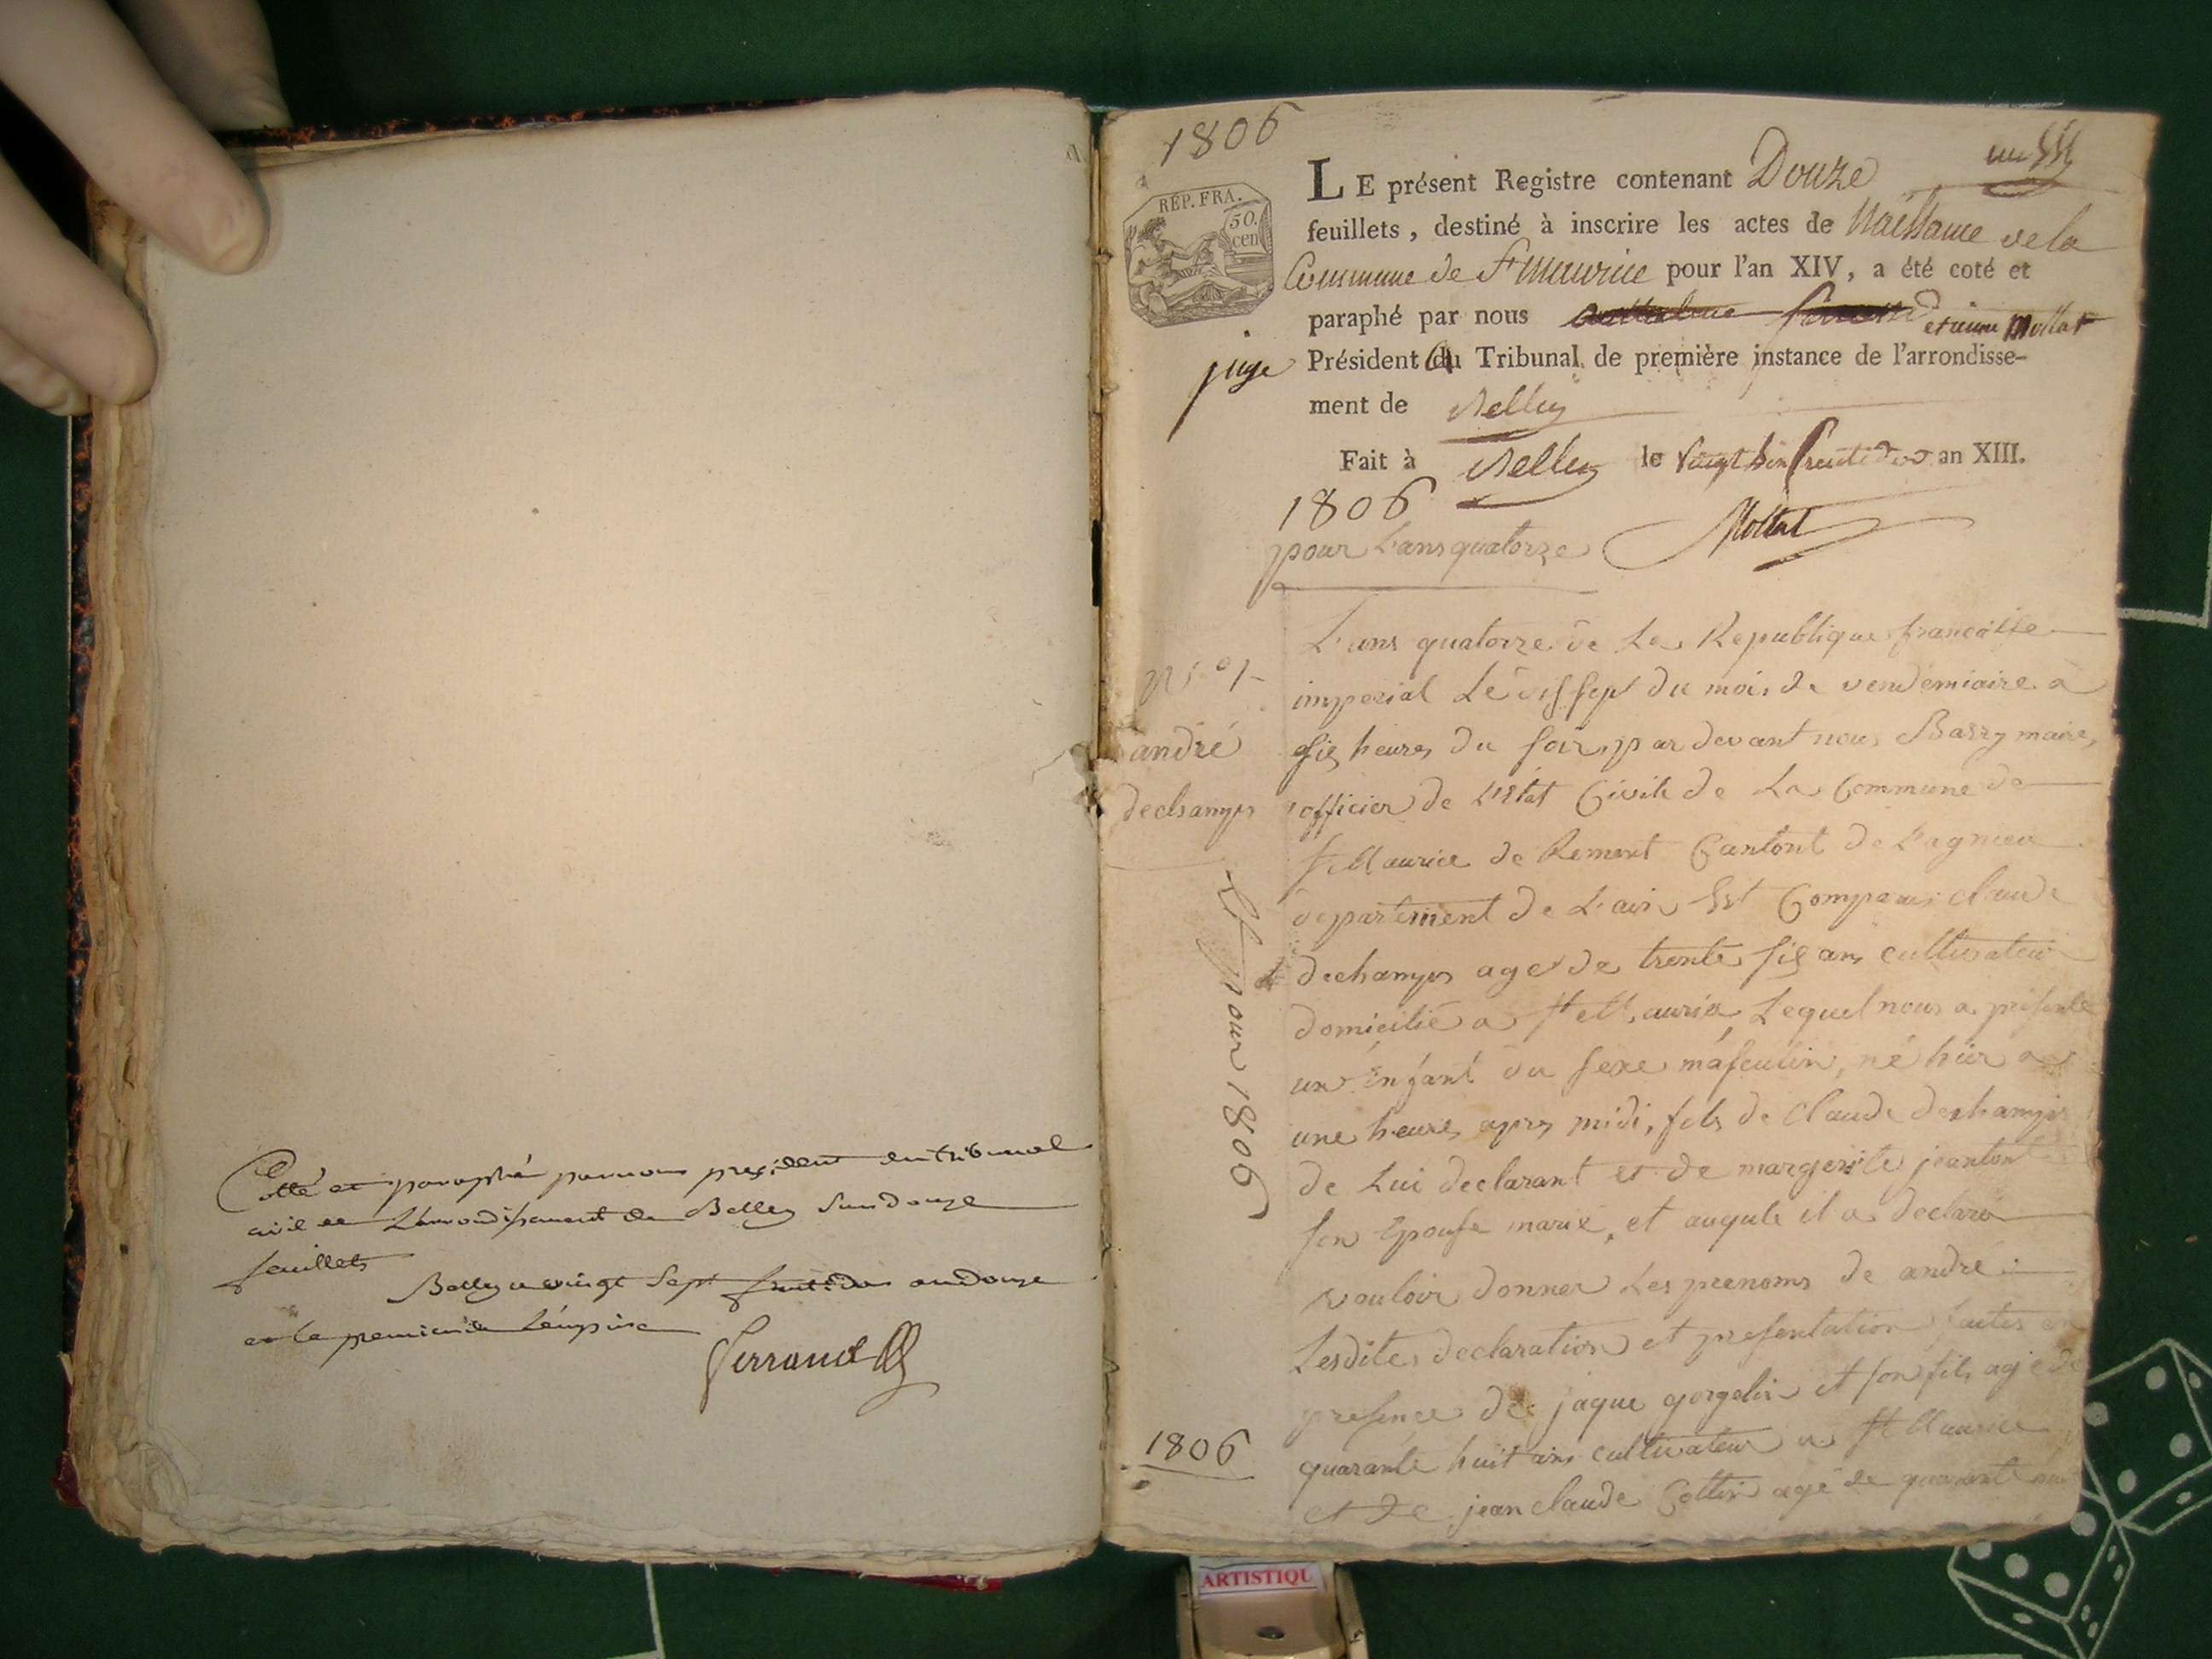 Cotté et paraphé par nous president du tribunal
civil de L'arrondissement de Belley Sur douze
feuillets
Belley le vingt Sept fructidor an douze
et le premier de L'empire
Ferrand
1806
RÉP. FRA.
50.
cen
LE présent Registre contenant Douze
feuillets, destiné à inscrire les actes de Naissance de la
Commune de St maurice pour l'an XIV, a été coté et
paraphé par nous etienne Mollat
juge Président au Tribunal de première instance de l'arrondisse-
ment de Belley
Fait à Belley le vingt fructidor an XIII.
1806
pour L'ans quatorze Mollat
N° 1
andré
dechamps
L'ans quatorze de La Republique francoise
imperial Le dissept du mois de vendemiaire a
six heures du soir, par devant nous Barry maire,
officier de L'Etat Civile de La Commune de
St Maurice de Rement Cantont de Lagnieu
departement de L'ain Est Comparus claude
dechamps age de trente six ans cultivateur
domicilié a St Maurice, Lequel nous a presenté
un Enfant du sexe masculin, né hier a
une heure apres midi, fils de Claude dechamps
de Lui declarant et de margerite jeantont
son Epouse marié, et auqule il a declaré
vouloir donner Les prenoms de andre
Lesdites declaration et presentation faites en
presence de jaque gorgelin et son fils agé de
quarante huit ans cultivateur a St Maurice
et de jean claude Cottin agé de quarante
pour 1806
1806
ARTISTIQU